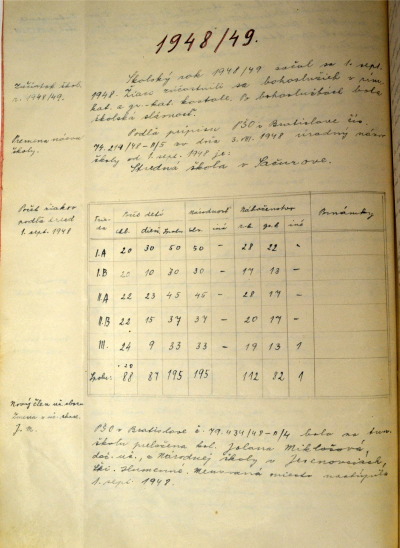 1948/49.
Začiatok škol.
r. 1948/49.
Školský rok 1948/49 začal sa 1. sept.
1948. Žiaci zúčastnili sa bohoslužieb v rím.
kat. a gr. kat. kostole. Po bohoslužbách bola
školská slávnosť.
Premena názvu
školy.
Podľa prípisu PŠO v Bratislave čís.
zo dňa 3. VIII. 1948 úradný názov
školy od 1. sept. 1948 je:
Stredná škola v
Počet žiakov
podľa tried
1. sept. 1948
Trie-
da
Počet detí
Národnosť
Náboženstvo
Poznámky
chl. dievč. Spolu slov. iná r.k. gr.k. iné
I.A 20 30 50 50 - 28 22 -
I.B 20 10 30 30 - 17 13 -
II.A 22 23 45 45 - 28 17 -
II.B 22 15 37 37 - 20 17 -
III. 24 9 33 33 - 19 13 1
Spolu: 88 87 195 195 112 82 1
Nový člen uč. sboru
J. M.
PŠO v Bratislave č. 79.434/48-II/4 bola na tun.
školu preložená kol. Jolana Miklošová,
doč. uč., z Národnej školy v
okr. Humenné. Menovaná miesto nastúpila
1. sept. 1948.